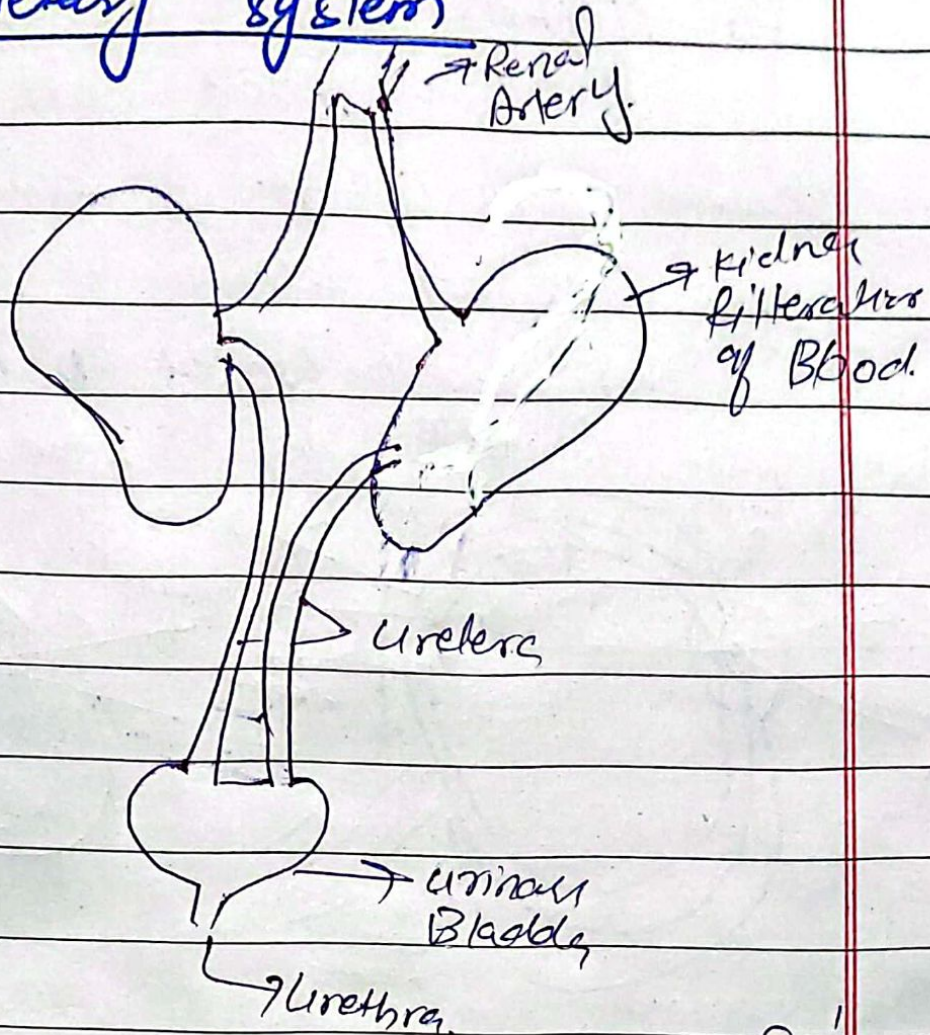 system
→ Renal
Artery.
→ Kidney
filteration
of Blood.
Ureters
→ Urinary
Bladder
→ Urethra.